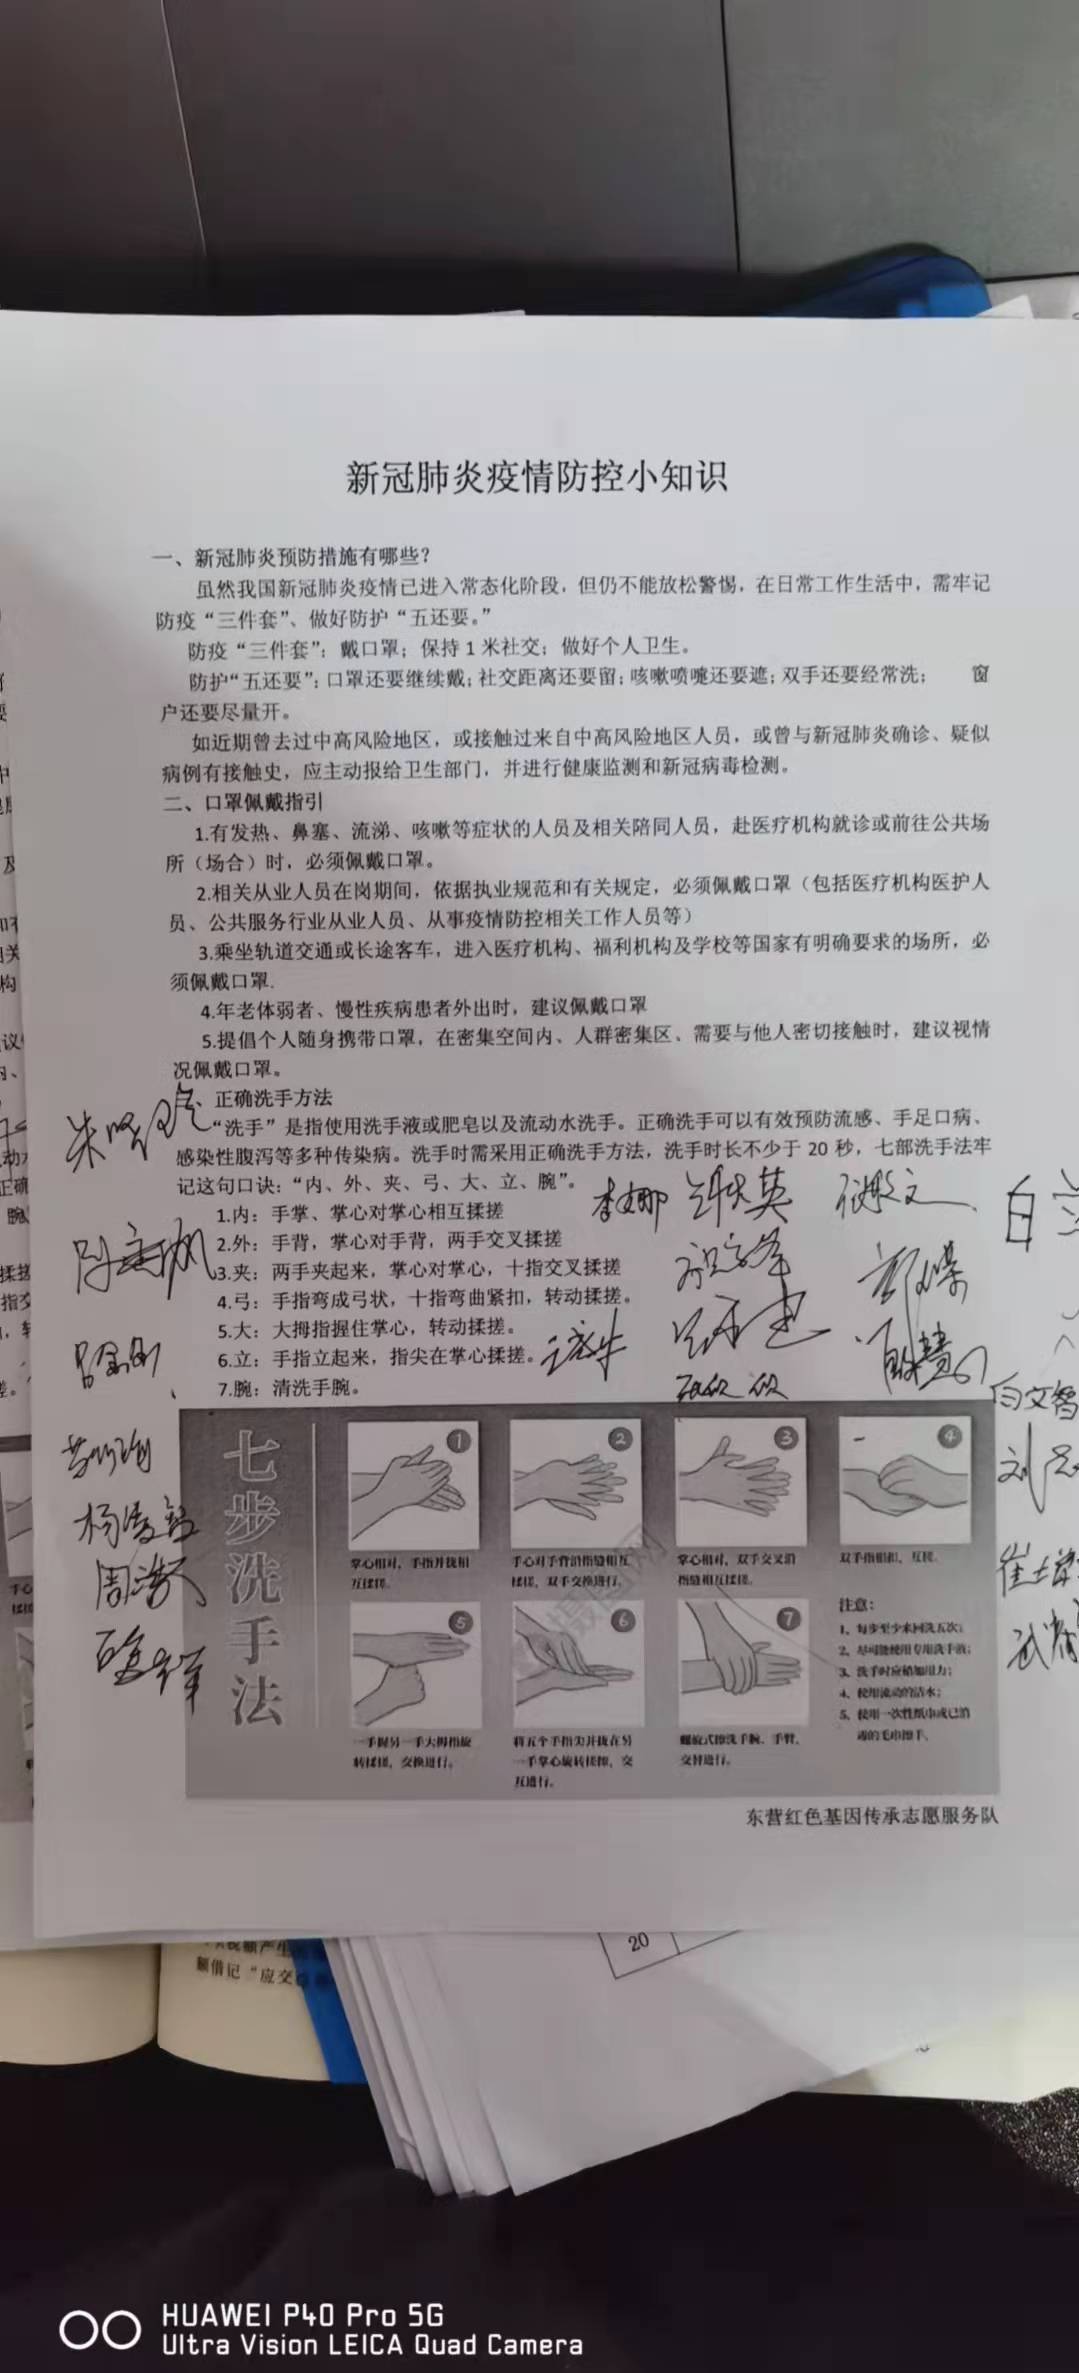 新冠肺炎疫情防控小知识
一、新冠肺炎预防措施有哪些？
虽然我国新冠肺炎疫情已进入常态化阶段，但仍不能放松警惕，在日常工作生活中，需牢记
防疫“三件套”、做好防护“五还要。”
防疫“三件套”：戴口罩；保持1米社交；做好个人卫生。
防护“五还要”：口罩还要继续戴；社交距离还要留；咳嗽喷嚏还要遮；双手还要经常洗； 窗
户还要尽量开。
如近期曾去过中高风险地区，或接触过来自中高风险地区人员，或曾与新冠肺炎确诊、疑似
病例有接触史，应主动报给卫生部门，并进行健康监测和新冠病毒检测。
二、口罩佩戴指引
1.有发热、鼻塞、流涕、咳嗽等症状的人员及相关陪同人员，赴医疗机构就诊或前往公共场
所（场合）时，必须佩戴口罩。
2.相关从业人员在岗期间，依据执业规范和有关规定，必须佩戴口罩（包括医疗机构医护人
员、公共服务行业从业人员、从事疫情防控相关工作人员等）
3.乘坐轨道交通或长途客车，进入医疗机构、福利机构及学校等国家有明确要求的场所，必
须佩戴口罩.
4.年老体弱者、慢性疾病患者外出时，建议佩戴口罩
5.提倡个人随身携带口罩，在密集空间内、人群密集区、需要与他人密切接触时，建议视情
况佩戴口罩。
、正确洗手方法
“洗手”是指使用洗手液或肥皂以及流动水洗手。正确洗手可以有效预防流感、手足口病、
感染性腹泻等多种传染病。洗手时需采用正确洗手方法，洗手时长不少于20秒，七部洗手法牢
记这句口诀：“内、外、夹、弓、大、立、腕”。
1.内：手掌、掌心对掌心相互揉搓
2.外：手背，掌心对手背，两手交叉揉搓
3.夹：两手夹起来，掌心对掌心，十指交叉揉搓
4.弓：手指弯成弓状，十指弯曲紧扣，转动揉搓。
5.大：大拇指握住掌心，转动揉搓。
6.立：手指立起来，指尖在掌心揉搓。
7.腕：清洗手腕。
李娜
白文智
周
七步洗手法
1
2
3
4
掌心相对，手指并拢相
互揉搓。
手心对手背沿指缝相互
揉搓，双手交换进行。
掌心相对，双手交叉沿
指缝相互揉搓。
双手指相扣，互搓。
5
6
7
一手握另一手大拇指旋
转揉搓，交换进行。
将五个手指尖并拢在另
一手掌心旋转揉擦，交
互进行。
螺旋式擦洗手腕、手臂，
交替进行。
注意：
1、每步至少来回洗五次；
2、尽可能使用专用洗手液；
3、洗手时应稍加用力；
4、使用流动的洁水；
5、使用一次性纸巾或已消
毒的毛巾擦手。
东营红色基因传承志愿服务队
20
额借记“应交
HUAWEI P40 Pro 5G
Ultra Vision LEICA Quad Camera